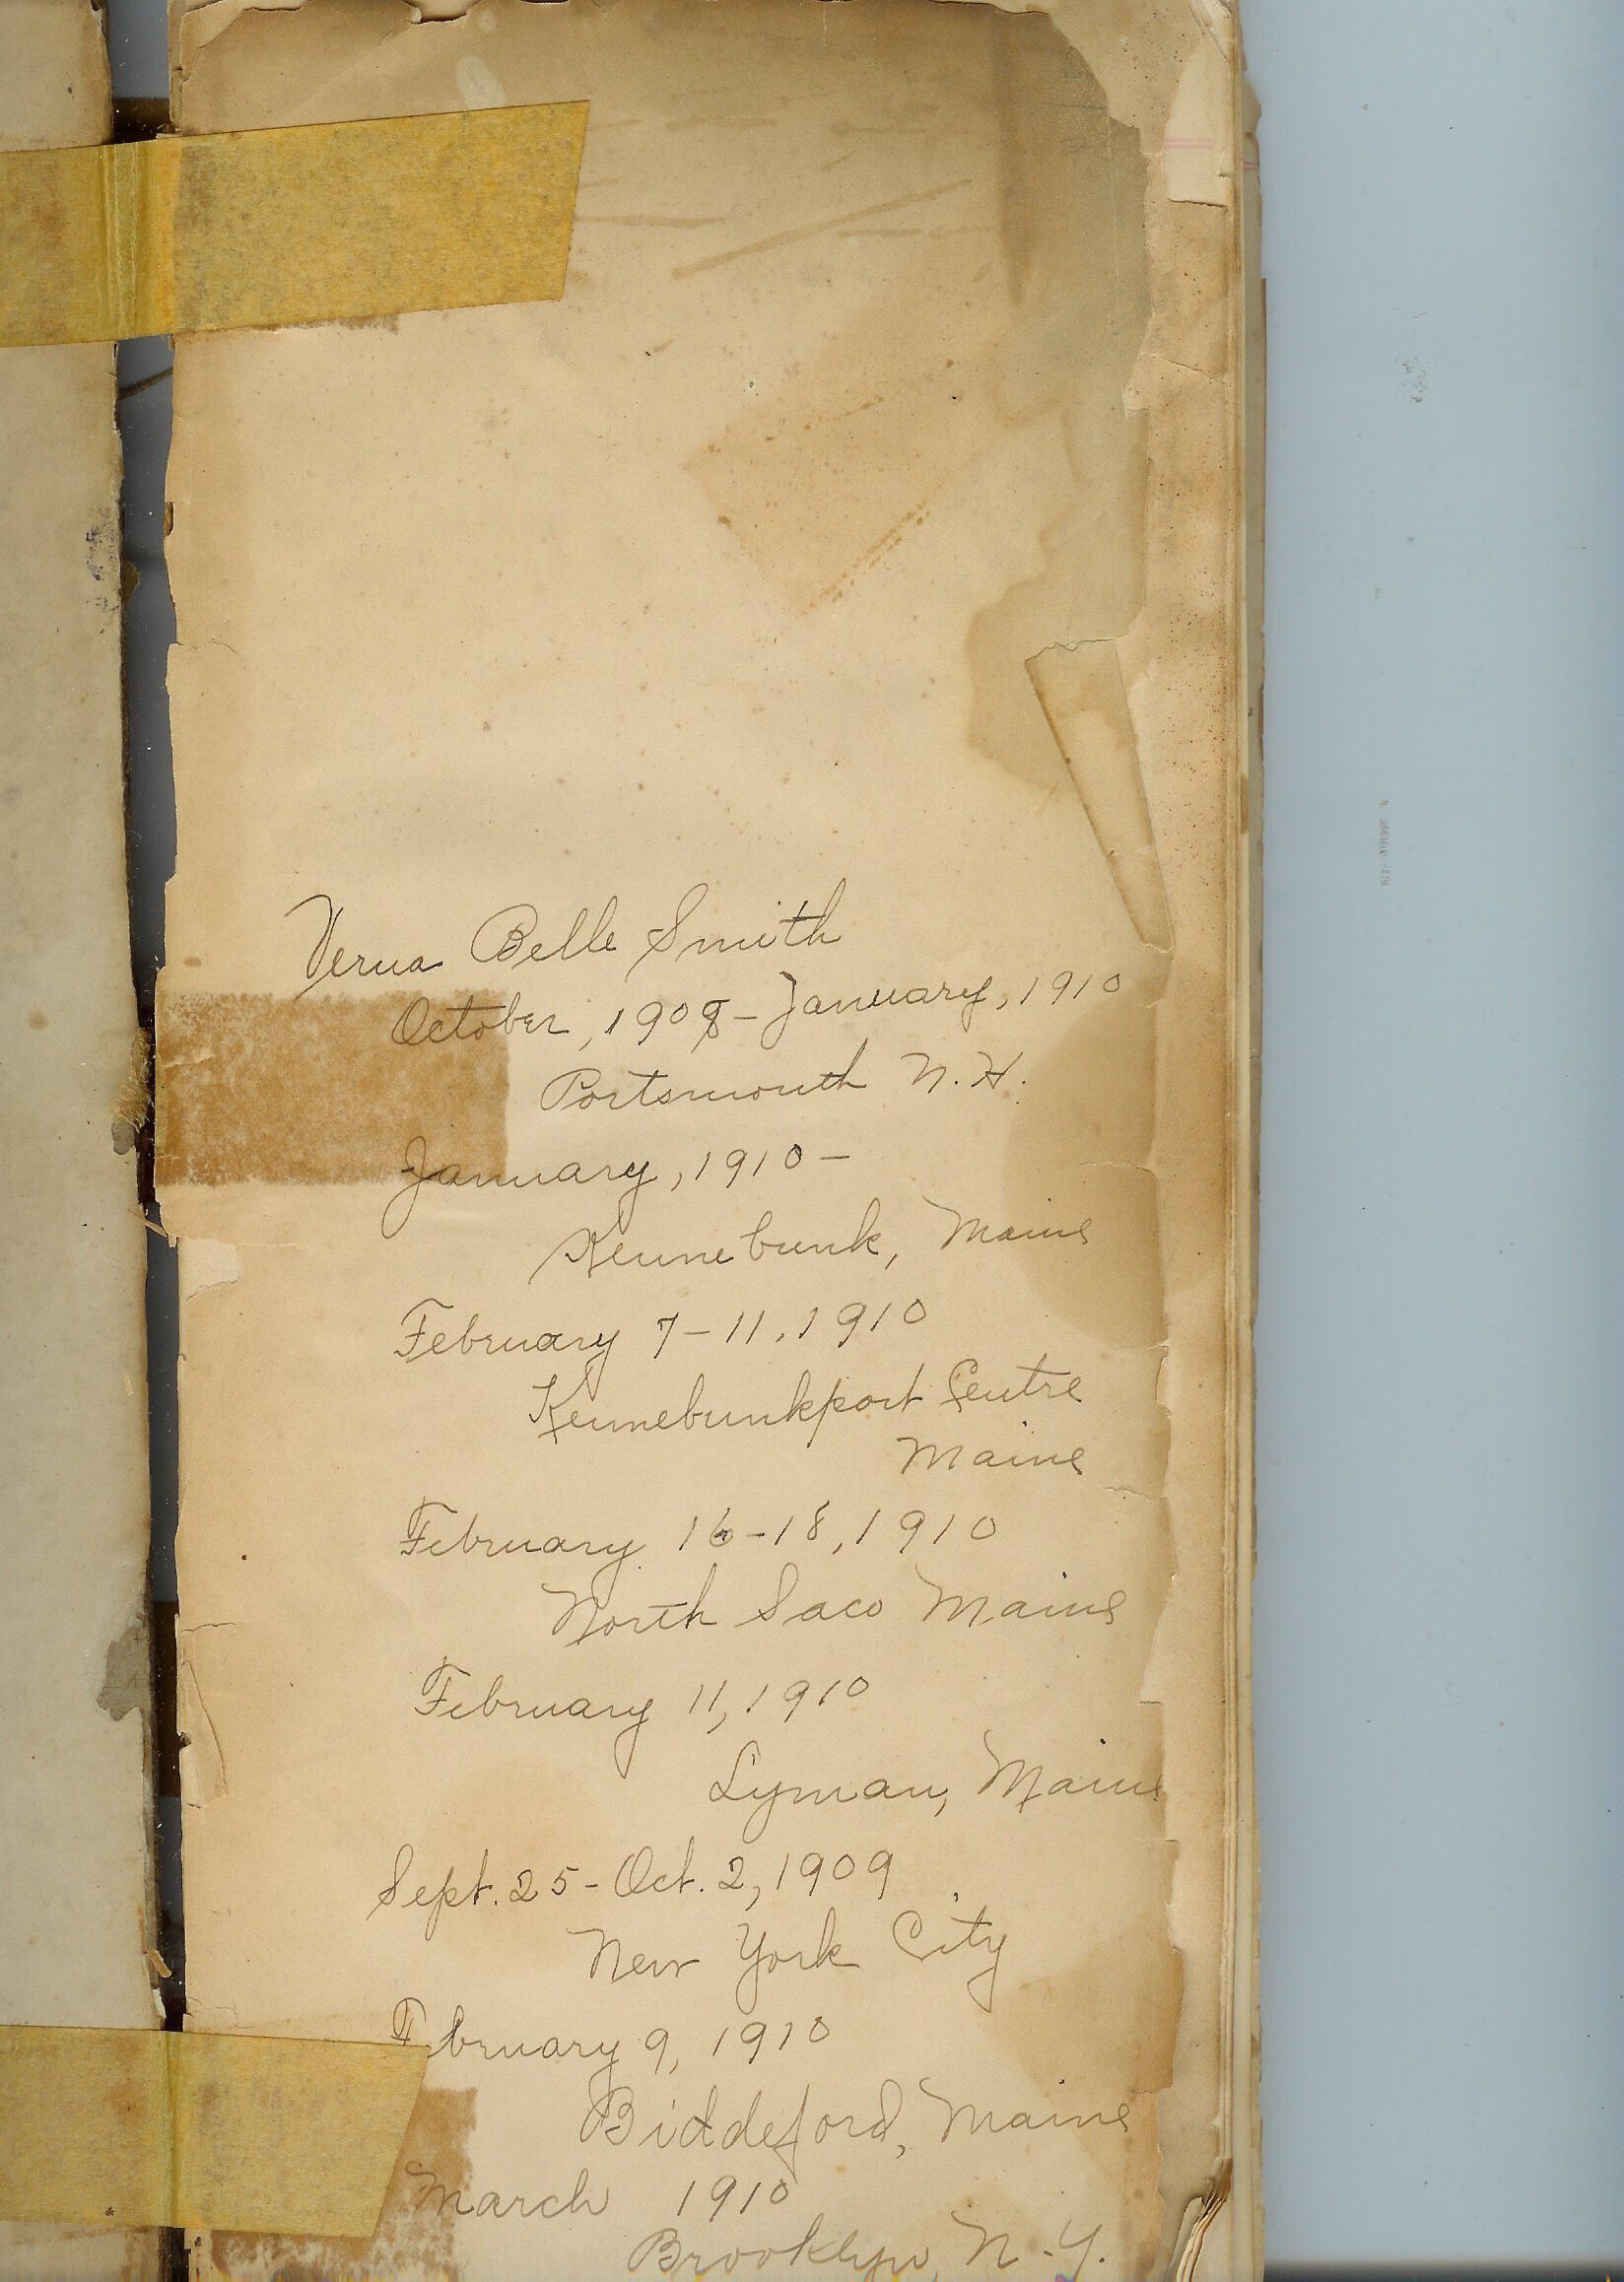 Verna Belle Smith
October, 1908 - January, 1910
Portsmouth N. H.
January, 1910 -
Kennebunk, Maine
February 7 - 11, 1910
Kennebunkport Centre
Maine
February 16 - 18, 1910
North Saco Maine
February 11, 1910
Lyman, Maine
Sept. 25 - Oct. 2, 1909
New York City
February 9, 1910
Biddeford, Maine
March 1910
Brooklyn, N. Y.